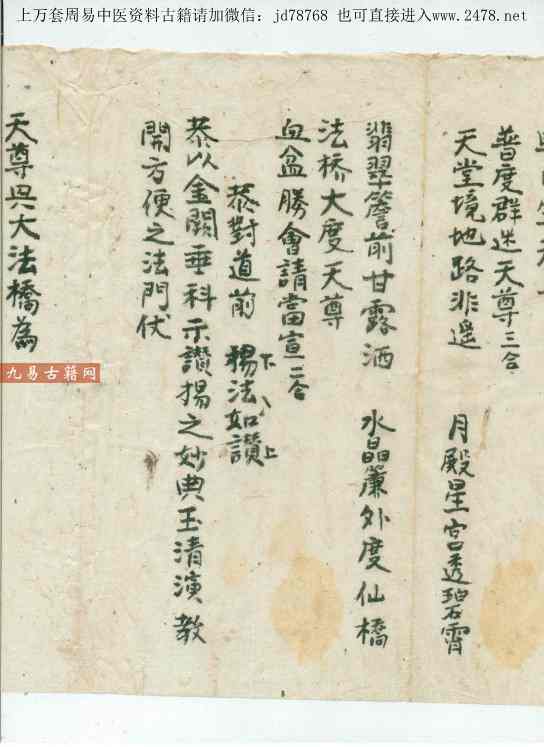 上万套周易中医资料古籍请加微信：jd78768 也可直接进入www.2478.net
普度群迷天尊三合
天堂境地路非遥　月殿星宫透碧霄
翡翠簷前甘露洒　水晶簾外度仙橋
法桥大度天尊
血盆勝會請當宣二合
恭對道前　揚法如讃
下　上
恭以金闕垂科示讃揚之妙典玉清演教
開方便之法門伏
天尊興大法橋為
九易古籍网